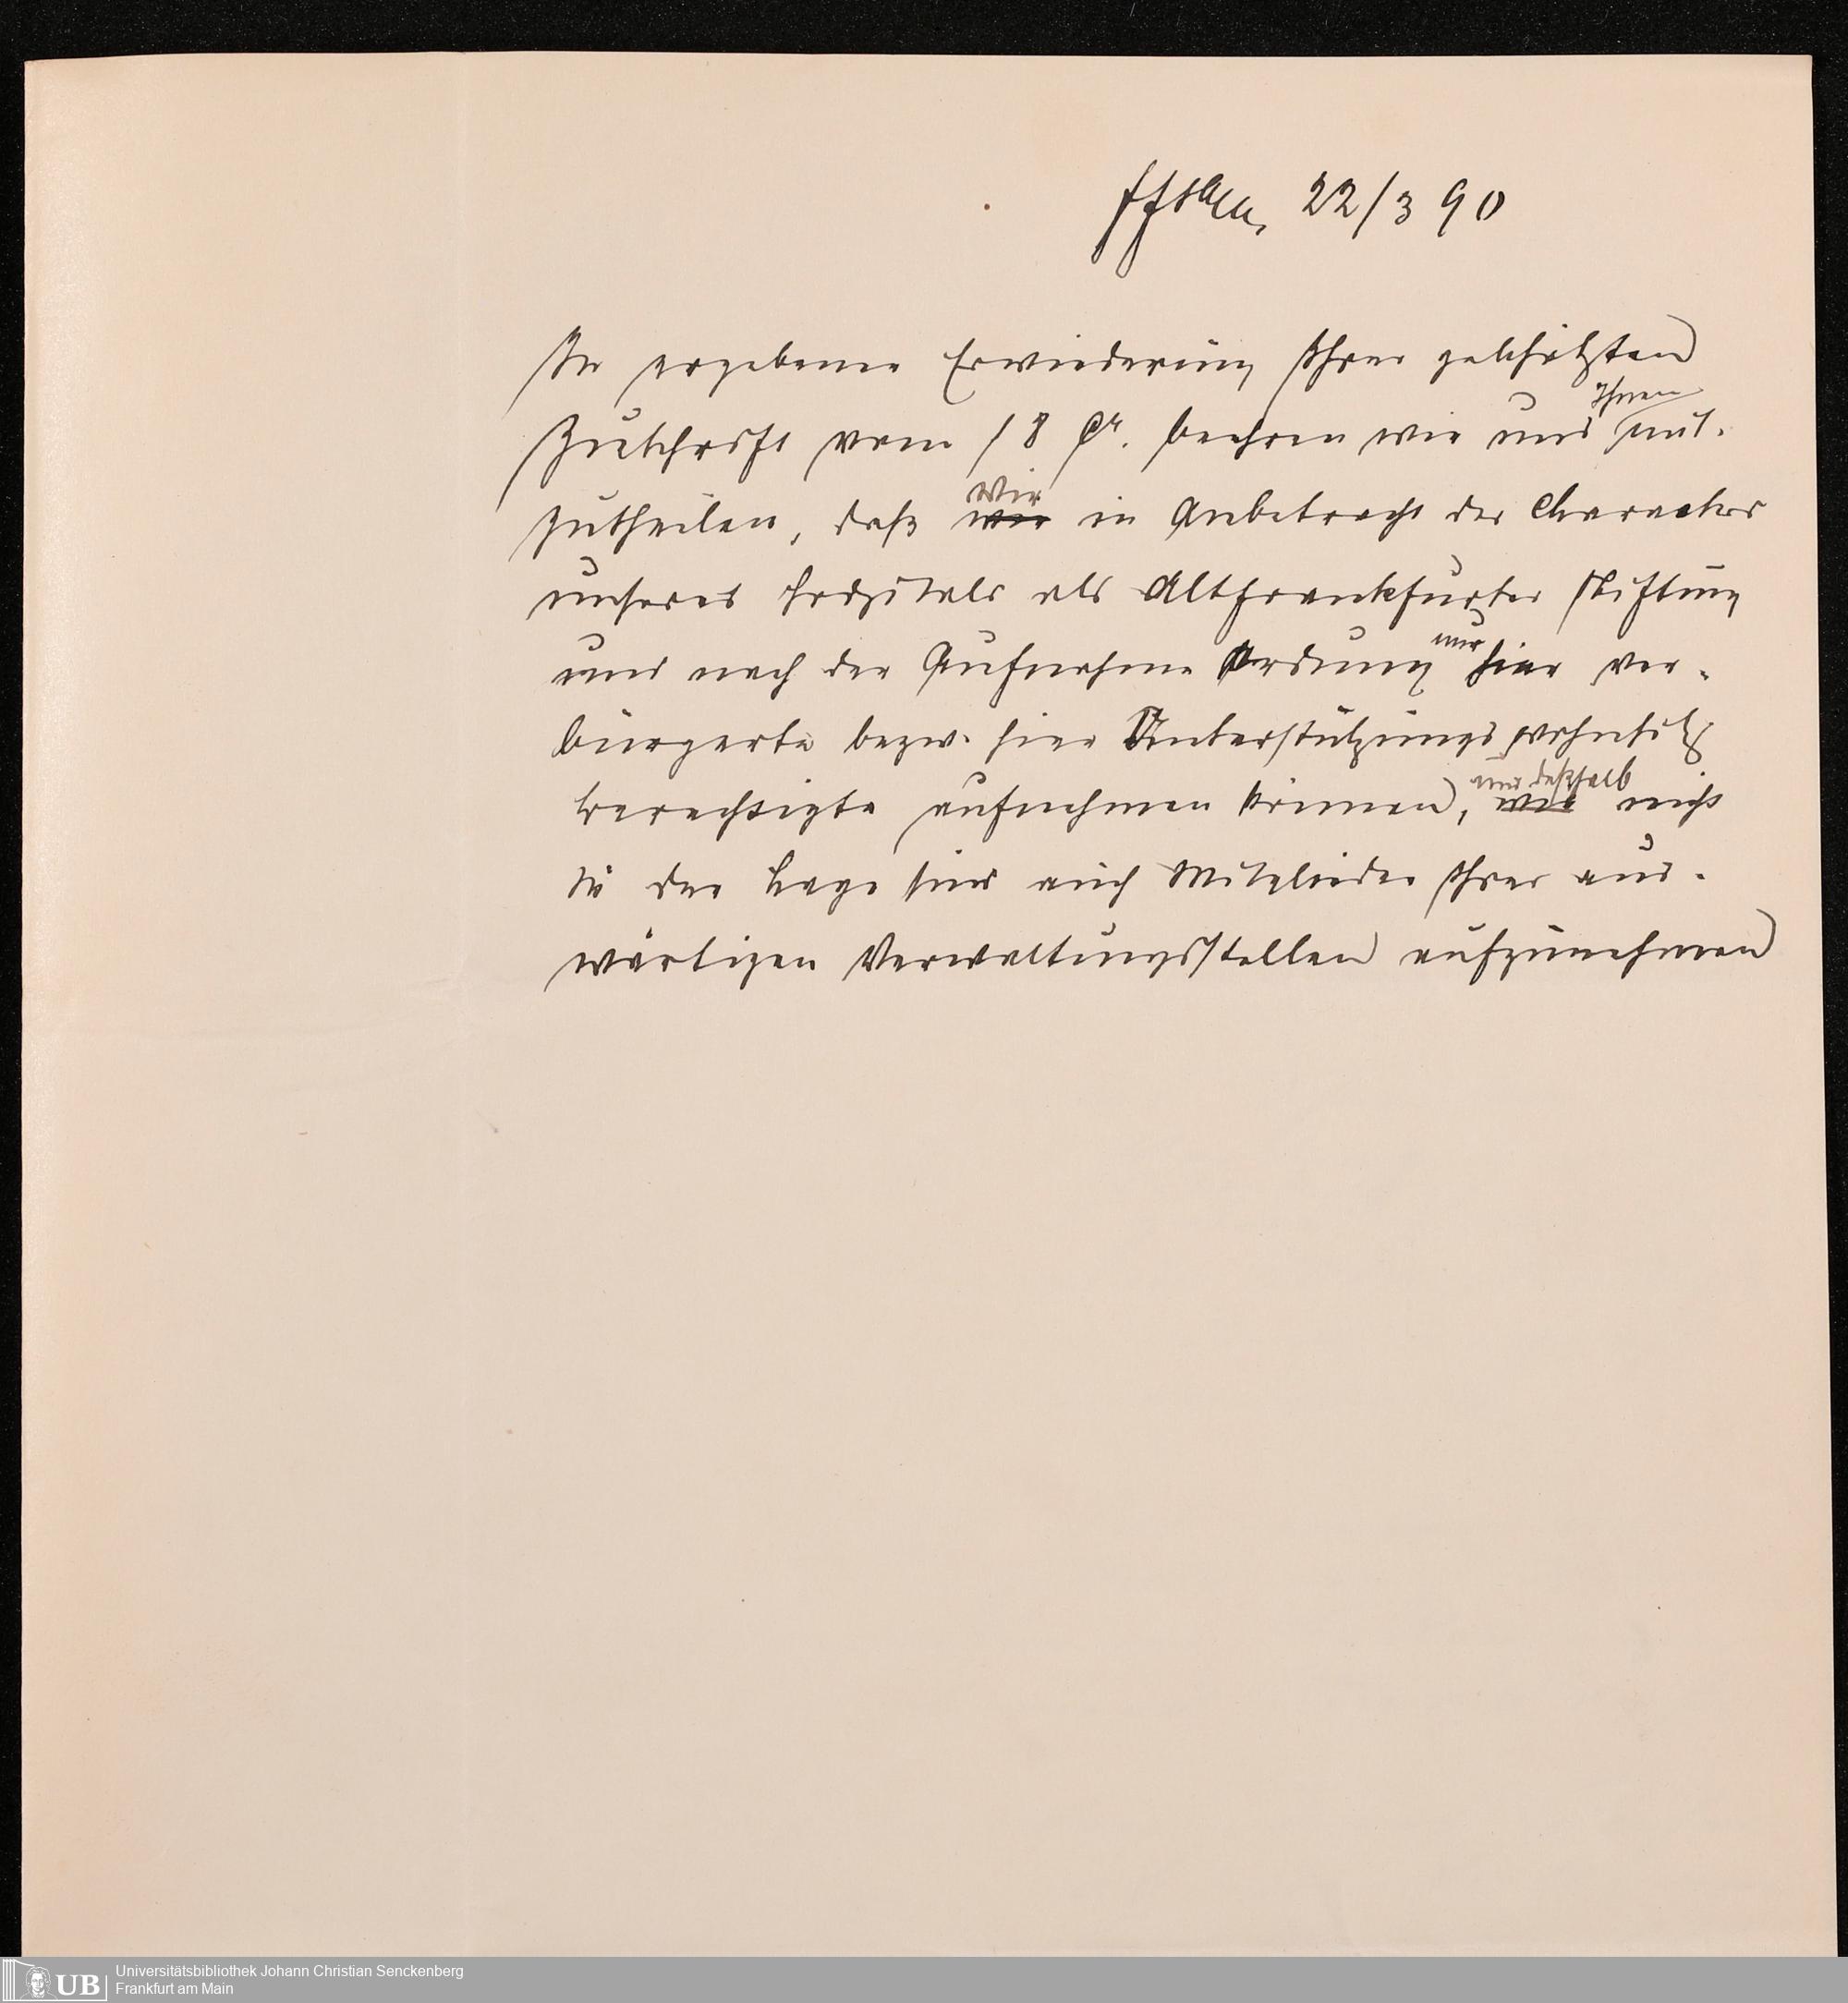 22/3 90
In ergebener Erwiederung Ihrer geschätzten
Ihnen
Zuschrift vom 18 cr. beehren wir uns mit-
wir
zutheilen, daß wir in Anbetracht des Characters
unseres Hospitals als Altfrankfurter Stiftung
nur
und nach der Aufnahme Ordnung hier ver-
bürgerte bezw. hier Unterstützungswohnsitz
und deßhalb
berechtigte aufnehmen können, wir nicht
in der Lage sind auch Mitglieder Ihrer aus-
wärtigen Verwaltungsstellen aufzunehmen
UB Universitätsbibliothek Johann Christian Senckenberg
Frankfurt am Main